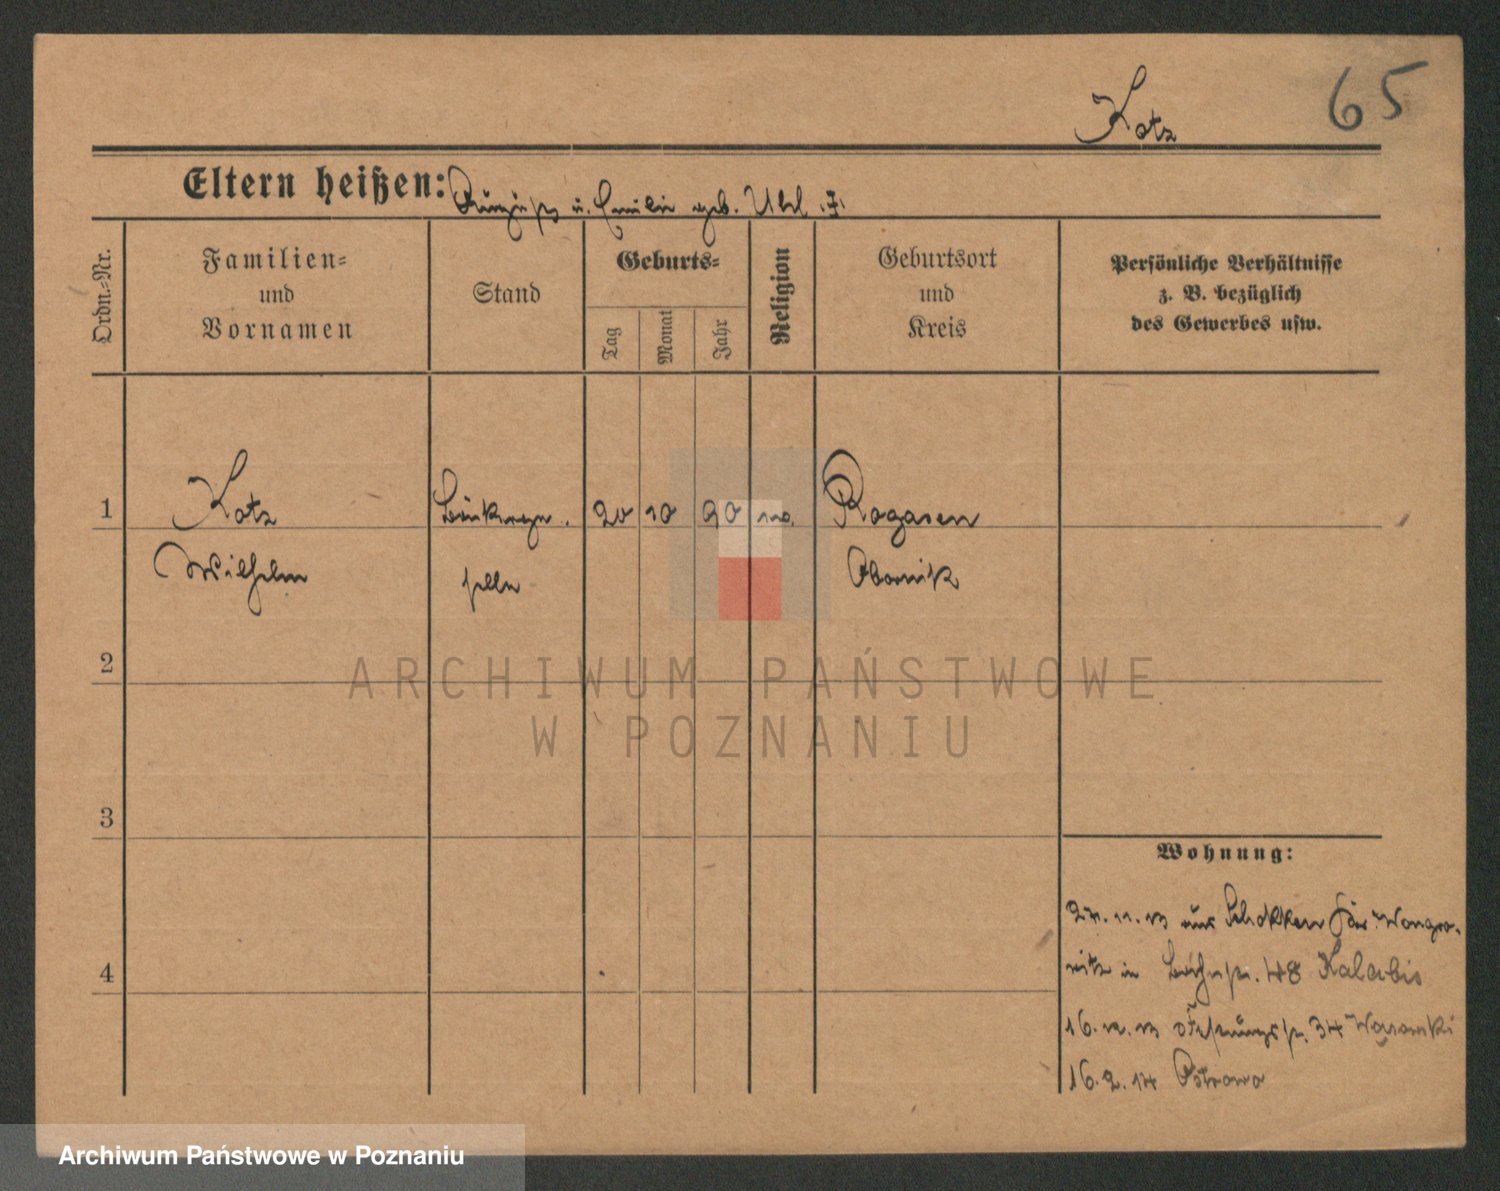 65
Katz
Eltern heißen: u. Emilie geb. Uhl
Ordn.-Nr.
Familien-
und
Vornamen
Stand
Geburts-
Tag
Monat
Jahr
Religion
Geburtsort
und
Kreis
Persönliche Verhältnisse
z. B. bezüglich
des Gewerbes usw.
1
Katz 20 10 90 Rogasen
Wilhelm Obornik
2
ARCHIWUM PAŃSTWOWE
W POZNANIU
3
Wohnung:
27.11.13 aus Schokken Kr. Wongro-
witz in 48 Kalabis
4
16.12.13 34
16.2.14 Ostrowo
Archiwum Państwowe w Poznaniu